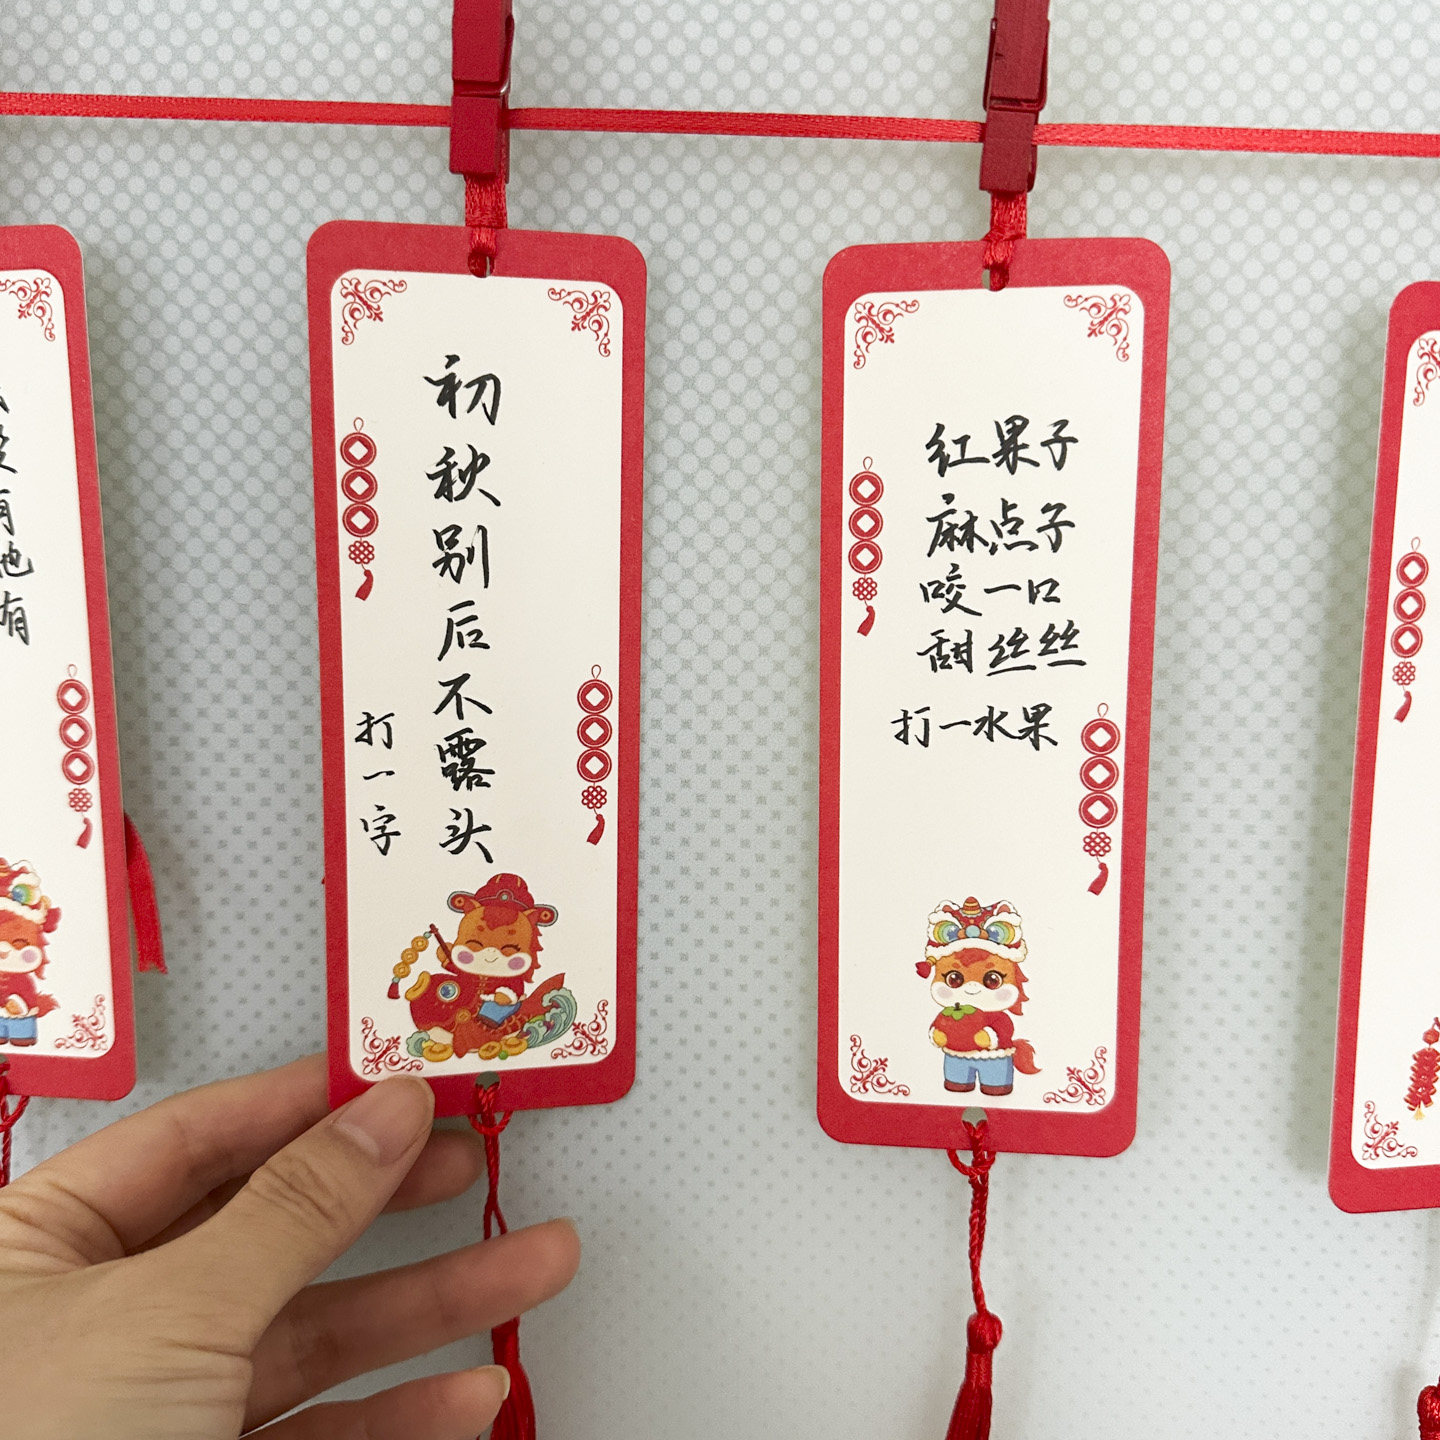 有他有
初秋别后不露头
打一字
红果子
麻点子
咬一口
甜丝丝
打一水果